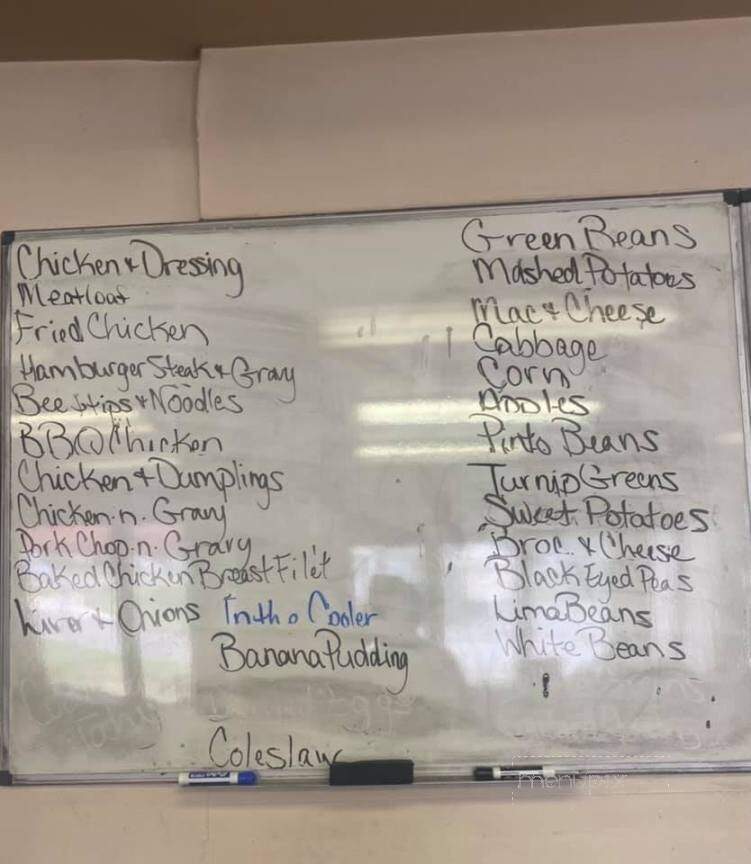 Chicken & Dressing
Meatloaf
Fried Chicken
Hamburger Steak & Gravy
Beef tips & Noodles
BBQ Chicken
Chicken & Dumplings
Chicken n. Gravy
Pork Chop n. Gravy
Baked Chicken Breast Filet
Liver & Onions
In the Cooler
Banana Pudding
Coleslaw
Green Beans
Mashed Potatoes
Mac & Cheese
Cabbage
Corn
Apples
Pinto Beans
Turnip Greens
Sweet Potatoes
Broc. & Cheese
Black Eyed Peas
Lima Beans
White Beans
menupix